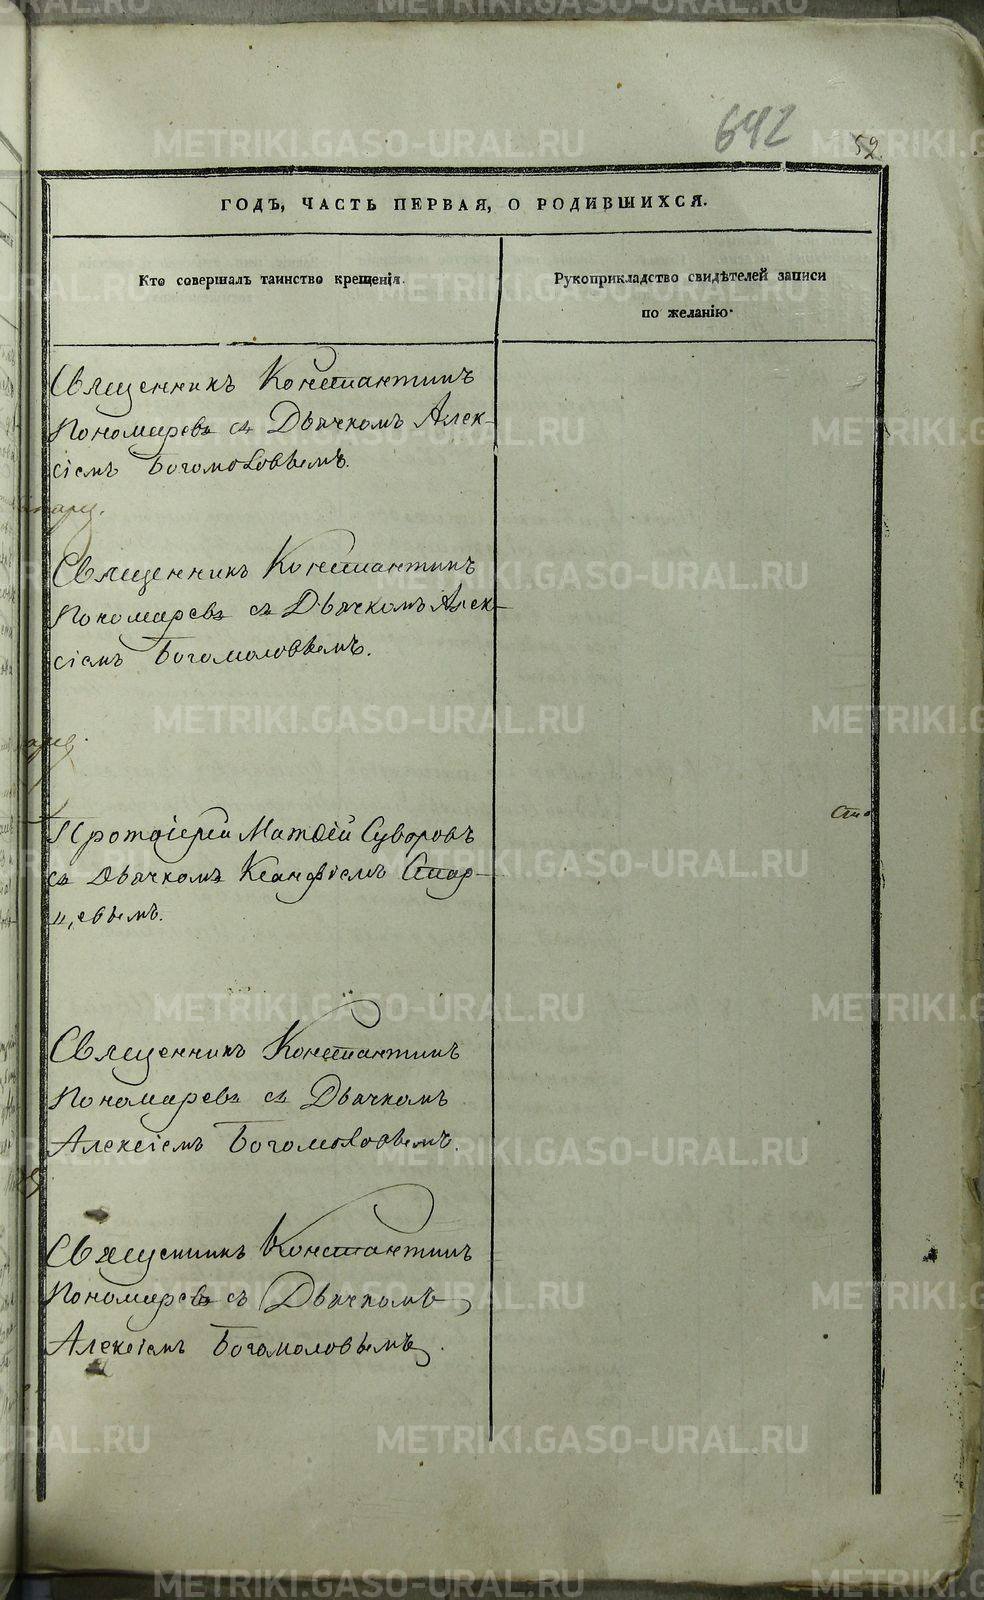 642
52
ГОДЪ, ЧАСТЬ ПЕРВАЯ, О РОДИВШИХСЯ.
Кто совершалъ таинство крещенія.
Рукоприкладство свидѣтелей записи
по желанію.
Священникъ Константинъ
Пономаревъ съ Дьячкомъ Алек-
сіемъ Богомоловымъ.
Священникъ Константинъ
Пономаревъ съ Дьячкомъ Алек-
сіемъ Богомоловымъ.
Протоіерей Матѳей Суворовъ
съ Дьячкомъ Ксанфіемъ Стар-
цевымъ.
Священникъ Константинъ
Пономаревъ съ Дьячкомъ
Алексіемъ Богомоловымъ.
Священникъ Константинъ
Пономаревъ съ Дьячкомъ
Алексіемъ Богомоловымъ.
METRIKI.GASO-URAL.RU